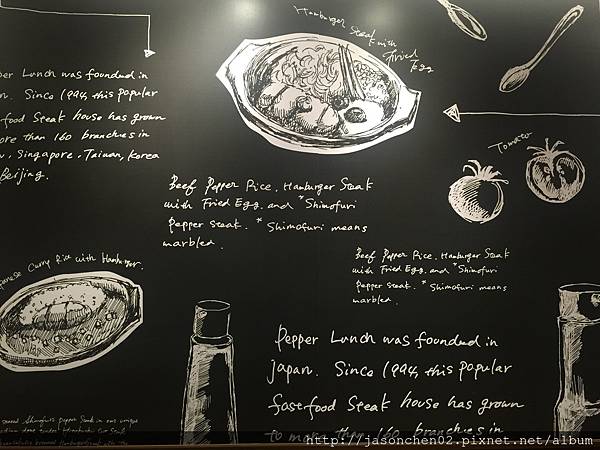 Hamburger Steak with
Fried
Egg
per Lunch was founded in
n. Since 1994, this popular
food Steak house has grown
ore than 160 branches in
, Singapore, Taiwan, Korea
Beijing.
Tomato
Beef Pepper Rice, Hamburger Steak
with Fried Egg, and *Shimofuri
Pepper steak. *Shimofuri means
marbled.
Beef Pepper Rice, Hamburger Steak
with Fried Egg, and *Shimofuri
Pepper steak. *Shimofuri means
marbled.
nese Curry Rice with Hamburger.
Pepper Lunch was founded in
Japan. Since 1994, this popular
fast food Steak house has grown
to more than 160 branches in
Shimofuri pepper Steak in our unique
http://jasonchen02.pixnet.net/album